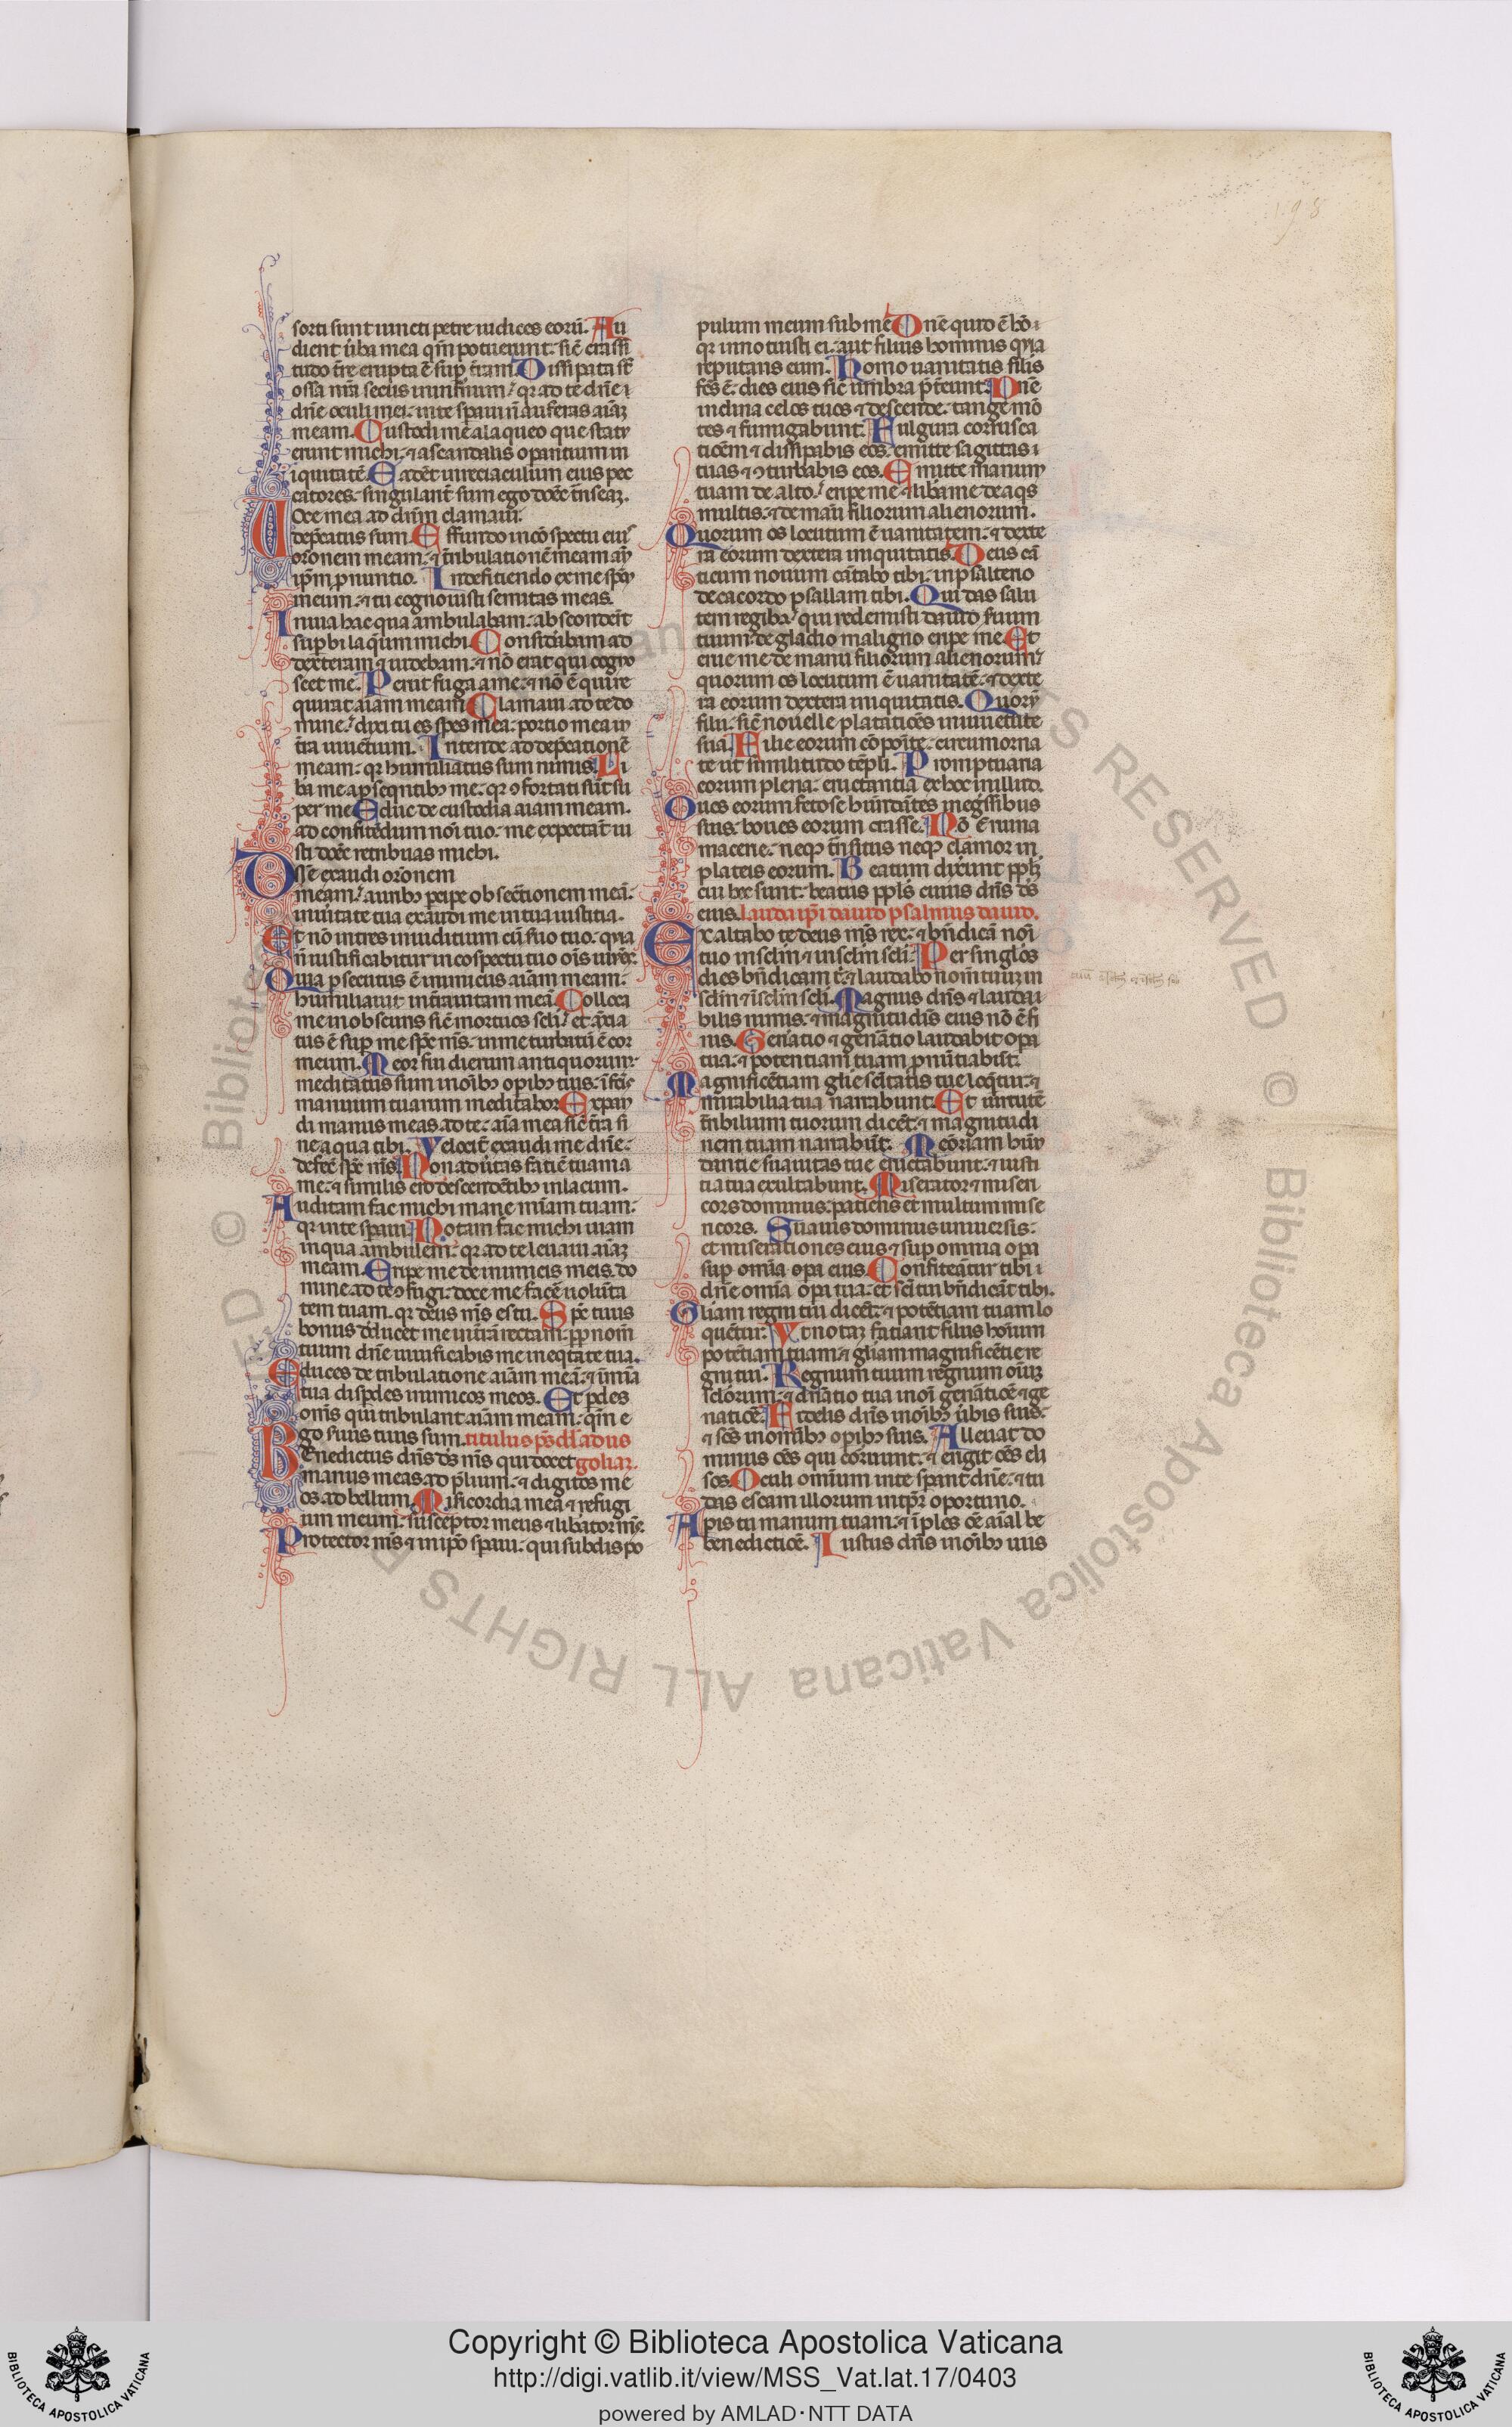 198
sorti sunt iuncti petre iudices eorū. Au
dient ūba mea qm̄ potuerunt. sic̄ crassi
tudo tr̄e erupta ē suꝑ tr̄am. Dissipata st̄
ossa nr̄a secus infernum. qr ad te dn̄e
dn̄e oculi mei. in te spaui n̄ auferas aīaꝫ
meam. Custodi me a laqueo que statu
erunt michi. ⁊ a scandalis oꝑantium in
iquitatē. Cadēt in reciaculum eius pec
catores. singulariť sum ego donec t̄nseaꝫ.
Uoce mea ad dn̄m clamaui.
dep̄catus sum. Effundo in cōspectu eiuˢ
oronem meam. ⁊ t̄bulationē meam an̄
ip̄m ꝓnuntio. In deficiendo ex me spm̄
meum. ⁊ tu cognouisti semitas meas.
In uia hac qua ambulabam. absconderūt
suꝑbi laq̄um michi. Considerabam ad
dexteram ⁊ uidebam. ⁊ nō erat qui cogno
sceret me. Periit fuga a me. ⁊ nō ē qui re
quirat aīam meam. Clamaui ad te do
mine. dixi tu es spes mea. portio mea in
tr̄a uiuētium. Intende ad dep̄cationē
meam. qr humiliatus sum nimis. Li
ba me a ꝑseq̄ntibꝫ me. qr ꝯfortati sūt su
per me. Educ de custodia aīam meam.
ad confitēdum noī tuo. me expectāt iu
sti donec retribuas michi.
Dn̄e exaudi oronem
meam. auribꝫ ꝑcipe obsecrationem meā.
in ueritate tua exaudi me in tua iustitia.
Et nō intres in iuditium cū suo tuo. quia
n̄ iustificabitur in cōspectu tuo oīs uiuēs.
Quia ꝑsecutus ē inimicus aīam meam.
humiliauit in tr̄a uitam meā. Colloca
me in obscuris sic̄ mortuos scl̄i. et ānxia
tus ē suꝑ me spc̄ ms̄. in me turbatū ē cor
meum. Meor fui dierum antiquorum.
meditatus sum in oībꝫ oꝑibꝫ tuis. in fc̄is
manuum tuarum meditabor. Expan
di manus meas ad te. aīa mea sic̄ tr̄a si
ne aqua tibi. Velociť exaudi me dn̄e.
defec̄ spc̄ ms̄. Non aūtas fatiē tuam a
me. ⁊ similis ero descendētibꝫ in lacum.
Auditam fac michi mane mīam tuam.
qr in te spaui. Notam fac michi uiam
in qua ambulem. qr ad te leuaui aīaꝫ
meam. Eripe me de inimicis meis do
mine ad te ꝯfugi. doce me facē uolūta
tem tuam. qr deus ms̄ es tu. Spc̄ tuus
bonus deducet me in tr̄a rectam. ꝓp̄ nom̄
tuum dn̄e uiuificabis me in eq̄tate tua.
Educes de tribulatione aīam meā. ⁊ in mīa
tua disꝑdes inimicos meos. Et ꝑdes
oms̄ qui tribulant aīam meam. qm̄ e
go suus tuus sum. titulus ps̄ dd̄ aduˢ
Benedictus dn̄s ds̄ ms̄ qui docet goliaꝫ.
manus meas ad p̄lium. ⁊ digitos me
os ad bellum. Misericordia mea ⁊ refugi
um meum. susceptor meus ⁊ libator ms̄.
Protector ms̄ ⁊ in ipō spaui. qui subdis po
pulum meum sub me. Dn̄e quid ē hō.
qr innotuisti ei. aut filius hominis quia
reputans eum. Homo uanitatis filis
fcs̄ ē. dies eius sic̄ umbra p̄ťeunt. Dn̄e
inclina celos tuos ⁊ descende. tange mō
tes ⁊ fumigabunt. Fulgura corrusca
ticēm ⁊ dissipabis eos. emitte sagittas
tuas ⁊ ꝯturbabis eos. Emitte manum
tuam de alto. eripe me ⁊ liba me de aq̄s
multis. ⁊ de manu filiorum alienorum.
Quorum os locutum ē uanitatem. ⁊ dexte
ra eorum dextera iniquitatis. Deus cā
ticum nouum cantabo tibi. in psalterio
decacordo psallam tibi. Qui das salu
tem regibꝫ. qui redemisti dauid suum
tuum. de gladio maligno eripe me. Et
erue me de manu filiorum alienorum.
quorum os locutum ē uanitatē. ⁊ dexte
ra eorum dextera iniquitatis. Quorum
filii. sic̄ nouelle platatiōes in iuuētute
sua. Filie eorum cōposite. circumorna
te ut similitudo tēpli. Promptuaria
eorum plena. eructantia ex hoc in illud.
Oues eorum fetose hundātes in egressibus
suis. boues eorum crasse. Nō ē ruina
macerie. neqꝫ t̄nsitus neqꝫ clamor in
plateis eorum. Beatum dixerunt pplm̄
cui hec sunt. beatus ppls̄ cuius dn̄s ds̄
eius. Lauda ip̄i dauid psalmus dauid.
Exaltabo te deus ms̄ rex. ⁊ bn̄dicā noī
tuo in sclm̄ ⁊ in sclm̄ scl̄i. Per singlos
dies bn̄dicam t̄. ⁊ laudabo nom̄ tuuꝫ in
sclm̄ ⁊ ī sclm̄ scl̄i. Magnus dn̄s ⁊ lauda
bilis nimis. ⁊ magnitudīs eius nō ē fi
nis. Gen̄atio ⁊ gen̄atio laudabit oꝑa
tua. ⁊ potentiam tuam ꝓnūtiabūt.
Magnificētiam gl̄ie sc̄itatis tue loq̄ntur. ⁊
mirabilia tua narrabunt. Et uirtutē
tr̄ibilium tuorum dicēt. ⁊ magnitudi
nem tuam narrabūt. Meōriam hūn
dantie suauitas tue eructabunt. ⁊ iusti
tia tua exultabunt. Miserator ⁊ miseri
cors dominus. patiens et multum mise
ricors. Suauis dominus uniuersis.
et miserationes eius ⁊ suꝑ omnia oꝑa
suꝑ omīa oꝑa eius. Confiteātur tibi
dn̄e omīa oꝑa tua. et sc̄i tui bn̄dicāt tibi.
Gl̄iam regni tui dicēt. ⁊ potētiam tuam lo
quētur. Vt notaꝫ fatiant filiis hoīum
potētiam tuam. ⁊ gl̄iam magnificētie re
gni tui. Regnum tuum regnum oīuꝫ
sclorum. ⁊ dn̄atio tua in oī gen̄aticē ⁊ ge
naticē. Fidelis dn̄s in oībꝫ ūbis suis.
⁊ scs̄ in omībꝫ oꝑibꝫ suis. Alleuat do
minus oēs qui corruunt. ⁊ erigit oēs eli
sos. Oculi omīum in te spant dn̄e. ⁊ tu
das escam illorum in tp̄ꝫ oportuno.
Aꝑis tu manum tuam. ⁊ īples oē aīal be
benedicticē. Iustus dn̄s in oībꝫ uiis
Copyright © Biblioteca Apostolica Vaticana
http://digi.vatlib.it/view/MSS_Vat.lat.17/0403
powered by AMLAD·NTT DATA
BIBLIOTECA APOSTOLICA VATICANA
BIBLIOTECA APOSTOLICA VATICANA
© Biblioteca Apostolica Vaticana ALL RIGHTS RESERVED